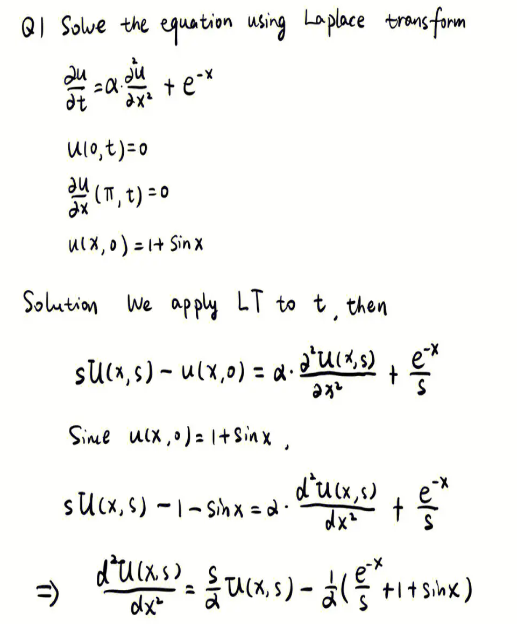 Q1 Solve the equation using Laplace transform
∂u/∂t = α·∂²u/∂x² + e^-x
u(0,t)=0
∂u/∂x (π,t)=0
u(x,0)=1+Sinx
Solution We apply LT to t, then
sU(x,s) - u(x,0) = α·∂²U(x,s)/∂x² + e^-x/s
Since u(x,0)=1+Sinx,
sU(x,s) - 1 - Sinx = α·d²U(x,s)/dx² + e^-x/s
⇒ d²U(x,s)/dx² = s/α U(x,s) - 1/α(e^-x/s + 1 + sinx)